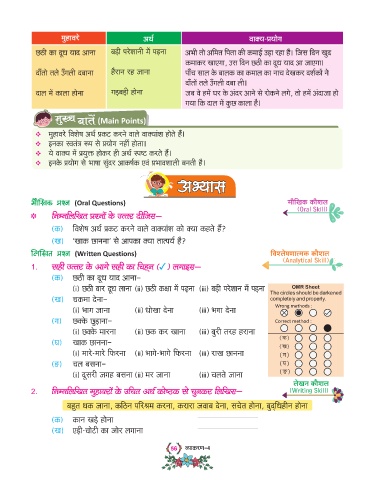 मुहावरे अर्थ वाक्य-प्रयोग
छठी का दूध याद आना बड़ी परेशानी में पड़ना अभी तो अमित पिता की कमाई उड़ा रहा है। जिस दिन खुद
कमाकर खाएगा, उस दिन छठी का दूध याद आ जाएगा।
दाँतों तले उँगली दबाना हैरान रह जाना पाँच साल के बालक का कमाल का नाच देखकर दर्शकों ने
दाँतों तले उँगली दबा ली।
दाल में काला होना गड़बड़ी होना जब वे हमें घर के अंदर आने से रोकने लगे, तो हमें अंदाजा हो
गया कि दाल में कुछ काला है।
मुख्य बातें (Main Points)
❖ मुहावरे विशेष अर्थ प्रकट करने वाले वाक्यांश होते हैं।
❖ इनका स्वतंत्र रूप से प्रयोग नहीं होता।
❖ ये वाक्य में प्रयुक्त होकर ही अर्थ स्पष्ट करते हैं।
❖ इनके प्रयोग से भाषा सुंदर आकर्षक एवं प्रभावशाली बनती है।
अभ्यास
मौखिक प्रश्न (Oral Questions) मौखिक कौशल
(Oral Skill)
निम्नलिखित प्रश्नों के उत्तर दीजिए—
(क) विशेष अर्थ प्रकट करने वाले वाक्यांश को क्या कहते हैं?
(ख) 'खाक छानना' से आपका क्या तात्पर्य है?
लिखित प्रश्न (Written Questions) विश्लेषणात्मक कौशल
(Analytical Skill)
1. सही उत्तर के आगे सही का चिह्न (✓) लगाइए—
(क) छठी का दूध याद आना–
(i) छठी बार दूध लाना (ii) छठी कक्षा में पढ़ना (iii) बड़ी परेशानी में पड़ना
(ख) चकमा देना–
(i) भाग जाना (ii) धोखा देना (iii) भगा देना
(ग) छक्के छुड़ाना–
(i) छक्के मारना (ii) छक कर खाना (iii) बुरी तरह हराना
(घ) खाक छानना–
(i) मारे-मारे फिरना (ii) भागे-भागे फिरना (iii) राख छानना
(ङ) चल बसना–
(i) दूसरी जगह बसना (ii) मर जाना (iii) चलते जाना
OMR Sheet
The circles should be darkened
completely and properly.
Wrong methods :
Correct method :
(क)
(ख)
(ग)
(घ)
(ङ)
लेखन कौशल
(Writing Skill)
2. निम्नलिखित मुहावरों के उचित अर्थ कोष्ठक से चुनकर लिखिए—
बहुत थक जाना, कठिन परिश्रम करना, करारा जवाब देना, सचेत होना, बुद्धिहीन होना
(क) कान खड़े होना
(ख) एड़ी-चोटी का जोर लगाना
56 व्याकरण-4